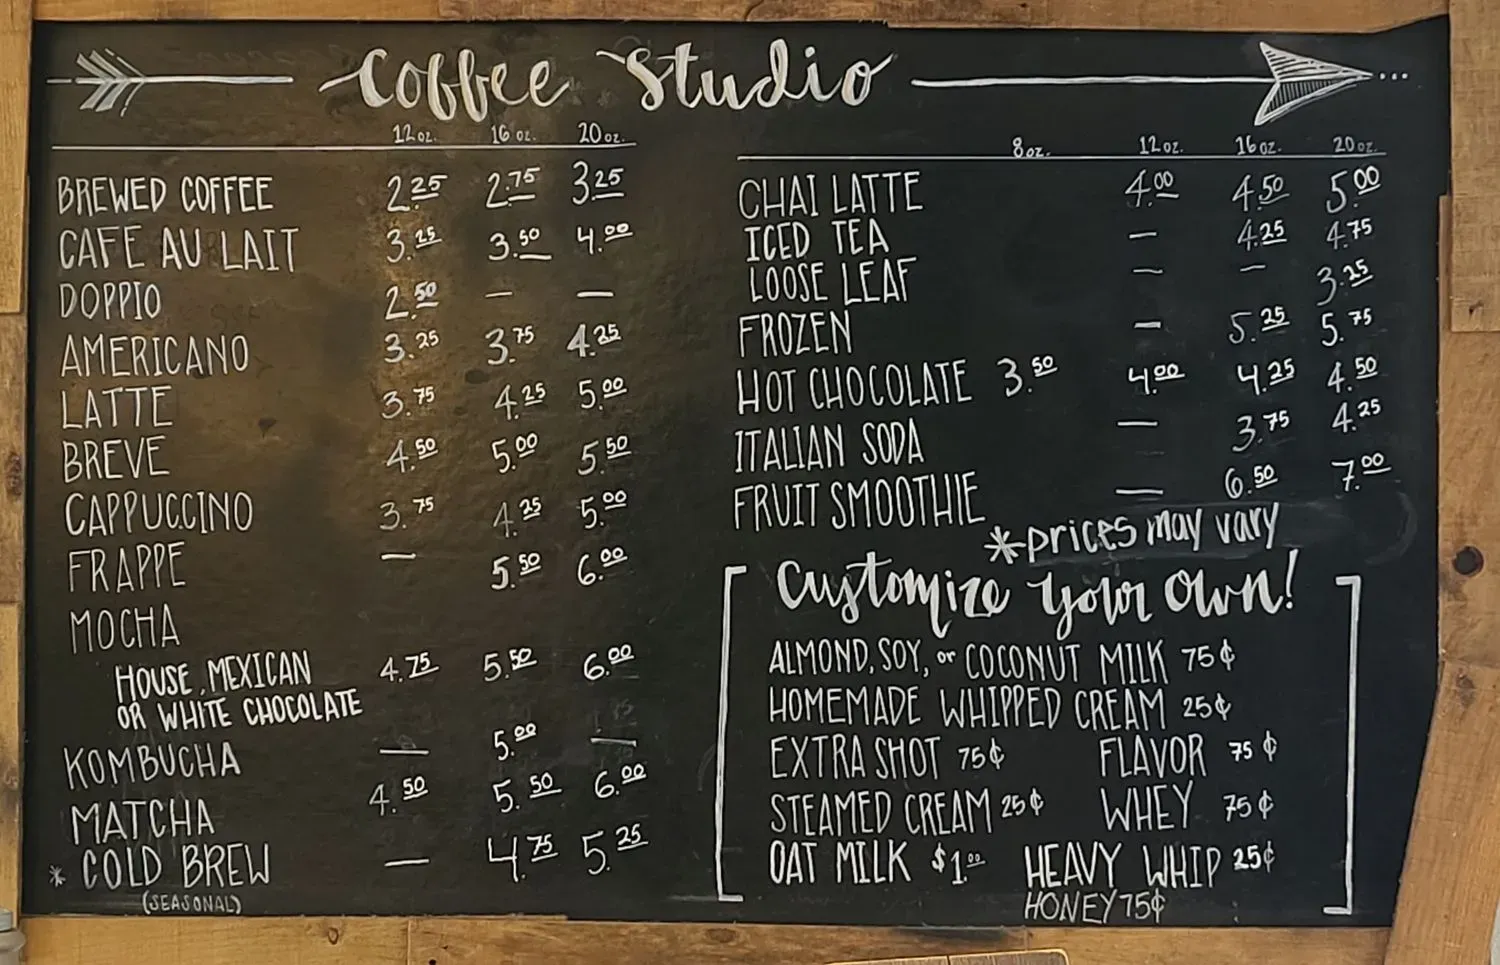 Coffee Studio
12 oz. 16 oz. 20 oz.
BREWED COFFEE 2.25 2.75 3.25
CAFE AU LAIT 3.25 3.50 4.00
DOPPIO 2.50 — —
AMERICANO 3.25 3.75 4.25
LATTE 3.75 4.25 5.00
BREVE 4.50 5.00 5.50
CAPPUCCINO 3.75 4.25 5.00
FRAPPE — 5.50 6.00
MOCHA
HOUSE, MEXICAN 4.75 5.50 6.00
OR WHITE CHOCOLATE
KOMBUCHA — 5.00 —
MATCHA 4.50 5.50 6.00
* COLD BREW — 4.75 5.25
(SEASONAL)
8 oz. 12 oz. 16 oz. 20 oz.
CHAI LATTE 4.00 4.50 5.00
ICED TEA — 4.25 4.75
LOOSE LEAF — — 3.25
FROZEN — 5.25 5.75
HOT CHOCOLATE 3.50 4.00 4.25 4.50
ITALIAN SODA — 3.75 4.25
FRUIT SMOOTHIE — 6.50 7.00
*prices may vary
Customize your own!
ALMOND, SOY, or COCONUT MILK 75¢
HOMEMADE WHIPPED CREAM 25¢
EXTRA SHOT 75¢ FLAVOR 75¢
STEAMED CREAM 25¢ WHEY 75¢
OAT MILK $1.00 HEAVY WHIP 25¢
HONEY 75¢